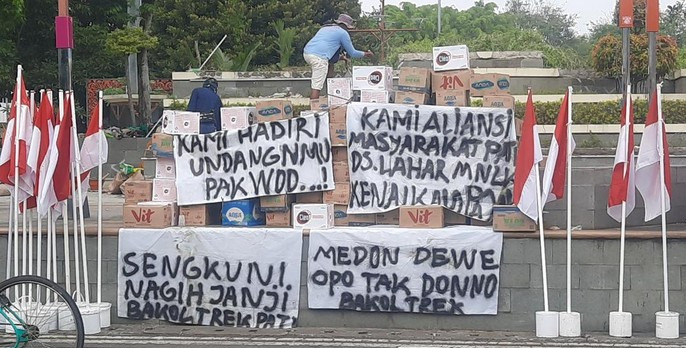 KAMI HADIRI
UNDANGNMU
PAK WDD...
KAMI ALIANSI
MASYARAKAT PATI
DS. LAHAR MNLK
KENAIKAN
SENGKUNI
NAGIH JANJI
BAKOL TREK PATI
MEDON DEWE
OPO TAK DONNO
BAKOL TREK
Vit
AQUA
Vit
Vit